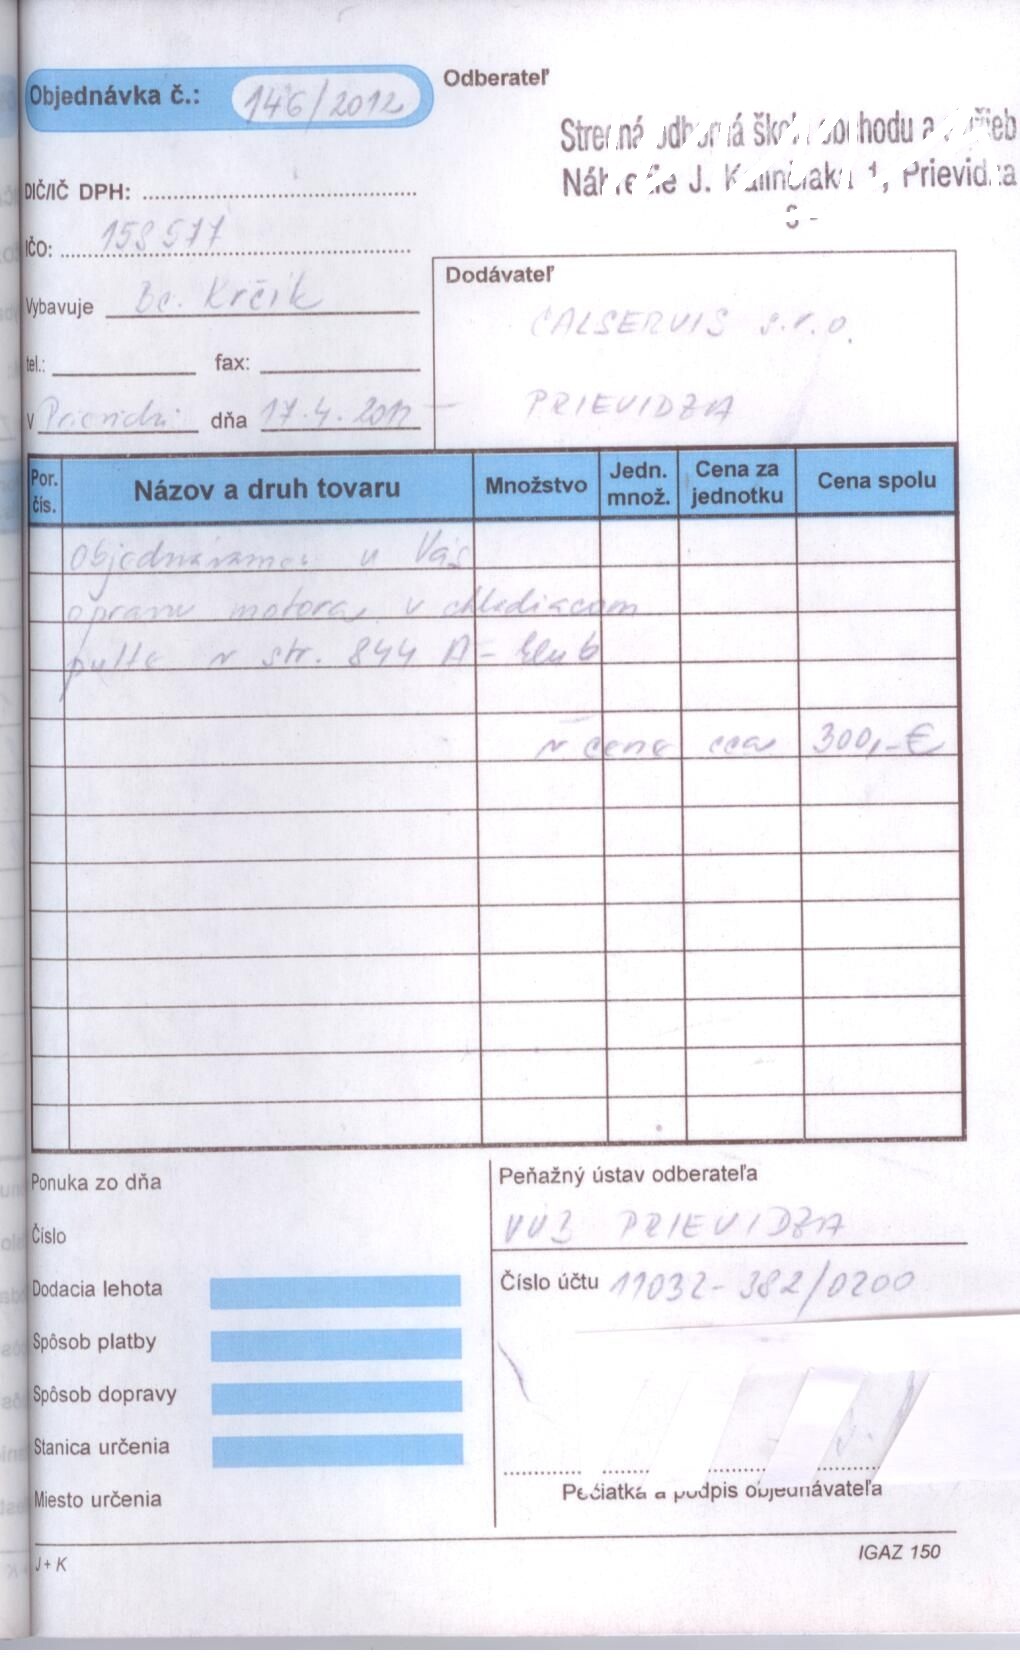 Objednávka č.: 146/2012
Odberateľ
Stredná odborná škola obchodu a služieb
Nábrežie J. Kalinčiaka 1, Prievidza
DIČ/IČ DPH:
IČO: 158577
Vybavuje Bc. Krčík
tel.: fax:
V Prievidzi dňa 17.4.2012
Dodávateľ
CALSERVIS s.r.o.
PRIEVIDZA
Por. čís. Názov a druh tovaru Množstvo Jedn. množ. Cena za jednotku Cena spolu
Objednávame u Vás
opravu motora v chladiacom
pulte v str. 844 A- klub
v cene cca 300,-€
Ponuka zo dňa
Číslo
Dodacia lehota
Spôsob platby
Spôsob dopravy
Stanica určenia
Miesto určenia
Peňažný ústav odberateľa
VÚB PRIEVIDZA
Číslo účtu 11032-382/0200
Pečiatka a podpis objednávateľa
J + K
IGAZ 150